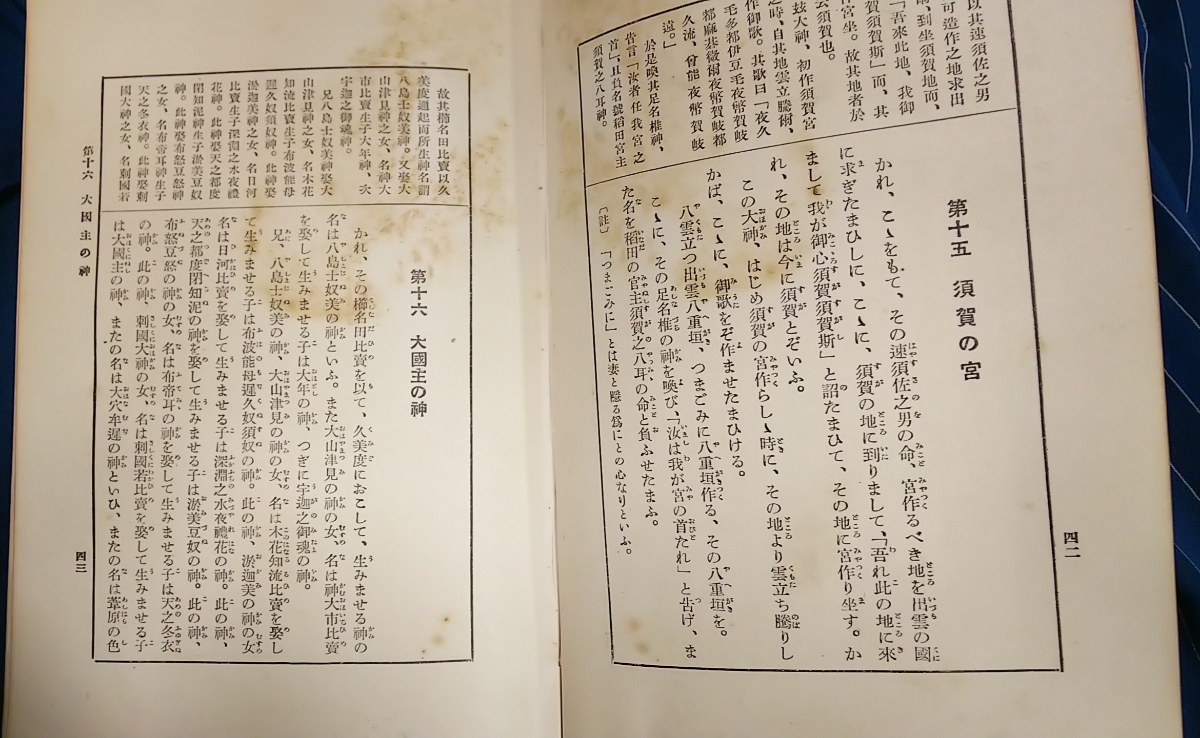 以其速須佐之男
可造作之地求出
到坐須賀地而、
「吾來此地、我御
賀須賀斯」而、其
作宮坐。故其地者於
云須賀也。
茲大神、初作須賀宮
之時、自其地雲立騰爾、
作御歌。其歌曰「夜久
毛多都伊豆毛夜幣賀岐
都麻碁微爾夜幣賀岐都
久流、曾能夜幣賀岐
遠。」
於是喚其足名椎神、
告言「汝者任我宮之
首」、且負名號稻田宮主
須賀之八耳神。
第十五 須賀の宮
かれ、こゝをもて、その速須佐之男の命、宮作るべき地を出雲の國
に求ぎたまひしに、こゝに、須賀の地に到りまして、「吾れ此の地に來
まして我が御心須賀須賀斯」と詔たまひて、その地に宮作り坐す。か
れ、その地は今に須賀とぞいふ。
この大神、はじめ須賀の宮作らしゝ時に、その地より雲立ち騰りし
かば、こゝに、御歌をぞ作ませたまひける。
八雲立つ出雲八重垣、つまごみに八重垣作る、その八重垣を。
こゝに、その足名椎の神を喚び、「汝は我が宮の首たれ」と告げ、ま
た名を稻田の宮主須賀之八耳の命と負ふせたまふ。
〔註〕 「つまごみに」とは妻と隱る爲にとの心なりといふ。
四二
故其櫛名田比賣以久
美度邇起而所生神名謂
八島士奴美神。又娶大
山津見神之女、名神大
市比賣生子大年神、次
宇迦之御魂神。
兄八島士奴美神娶大
山津見神之女、名木花
知流比賣生子布波能母
遲久奴須奴神。此神娶
淤迦美神之女、名日河
比賣生子深淵之水夜禮
花神。此神娶天之都度
閉知泥神生子淤美豆奴
神。此神娶布怒豆怒神
之女、名布帝耳神生子
天之冬衣神。此神娶刺
國大神之女、名刺國若
第十六 大國主の神
かれ、その櫛名田比賣を以て、久美度におこして、生みませる神の
名は八島士奴美の神といふ。また大山津見の神の女、名は神大市比賣
を娶して生みませる子は大年の神、つぎに宇迦之御魂の神。
兄、八島士奴美の神、大山津見の神の女、名は木花知流比賣を娶し
て生みませる子は布波能母遲久奴須奴の神。此の神、淤迦美の神の女
名は日河比賣を娶して生みませる子は深淵之水夜禮花の神。此の神、
天之都度閉知泥の神を娶して生みませる子は淤美豆奴の神。此の神、
布怒豆怒の神の女、名は布帝耳の神を娶して生みませる子は天之冬衣
の神。此の神、刺國大神の女、名は刺國若比賣を娶して生みませる子
は大國主の神、またの名は大穴牟遲の神といひ、またの名は葦原の色
第十六 大國主の神
四三